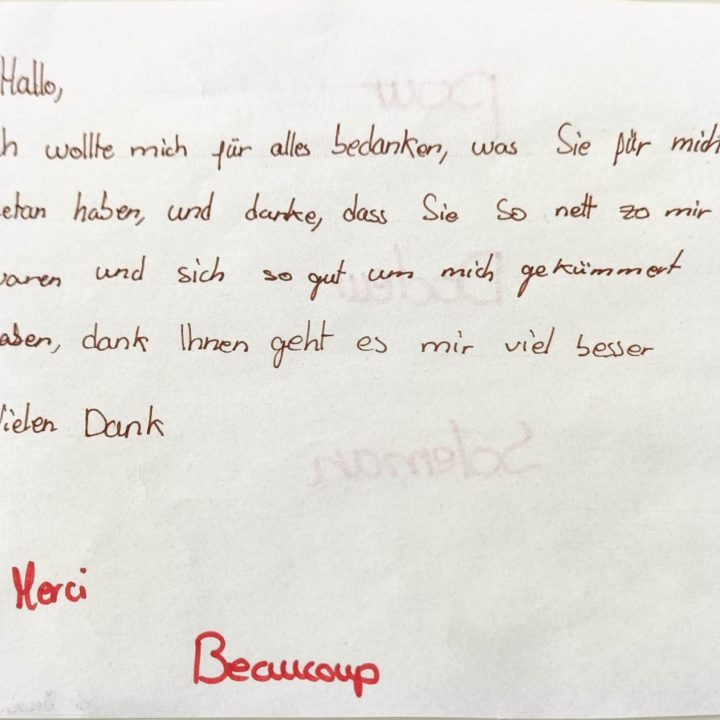 Hallo,
h wollte mich für alles bedanken, was Sie für mich
etan haben, und danke, dass Sie so nett zo mir
waren und sich so gut um mich gekümmert
aben, dank Ihnen geht es mir viel besser
Vielen Dank
Merci
Beaucoup
pour
Docteur
Soleman